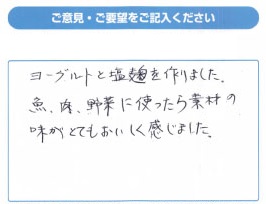 ご意見・ご要望をご記入ください
ヨーグルトと塩麹を作りました。
魚、肉、野菜に使ったら素材の
味がとてもおいしく感じました。